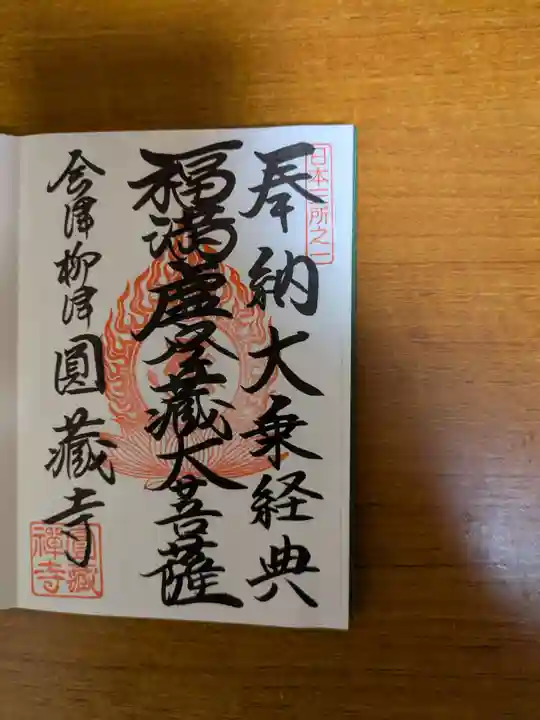 日本三所之一
奉納大乗経典
福満虚空蔵大菩薩
会津柳津圓蔵寺
圓蔵禅寺